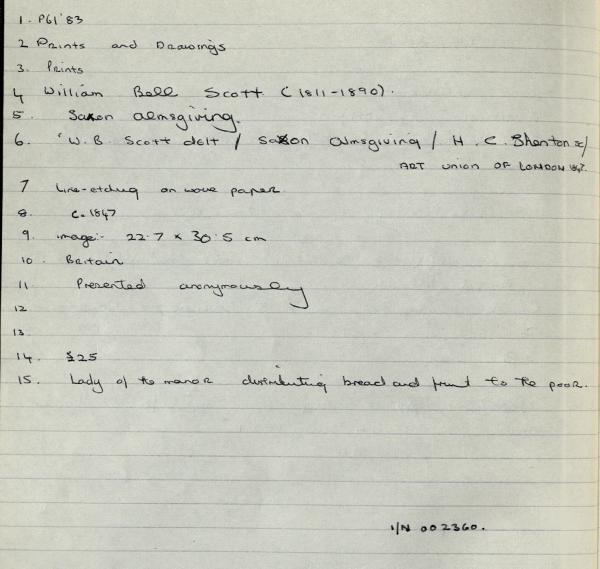 1. P61'83
2 Prints and Drawings
3. Prints
4 William Bell Scott (1811-1890).
5. Saxon almsgiving.
6. 'W.B. Scott delt / Saxon Almsgiving / H.C. Shenton sc/
ART UNION OF LONDON 1847.
7 Line-etching on wove paper.
8. c. 1847
9. image:- 22.7 x 30.5 cm
10. Britain
11 Presented anonymously
12
13
14. $25
15. Lady of the manor distributing bread and fruit to the poor.
I/N 002360.